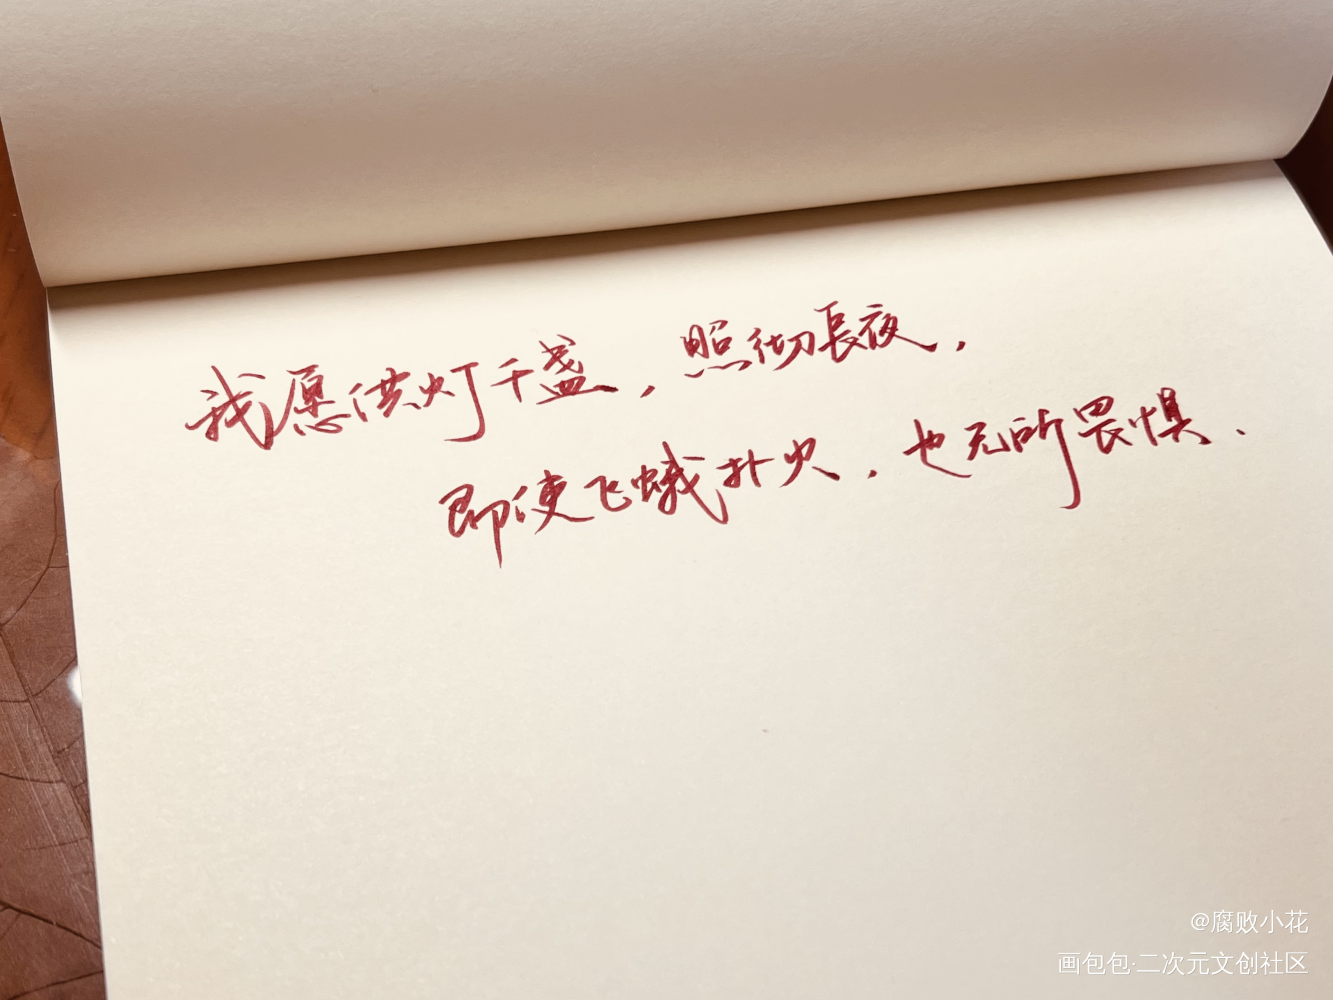 我愿供灯千盏，照彻長夜，
即使飞蛾扑火，也无所畏惧.
@腐败小花
画包包·二次元文创社区